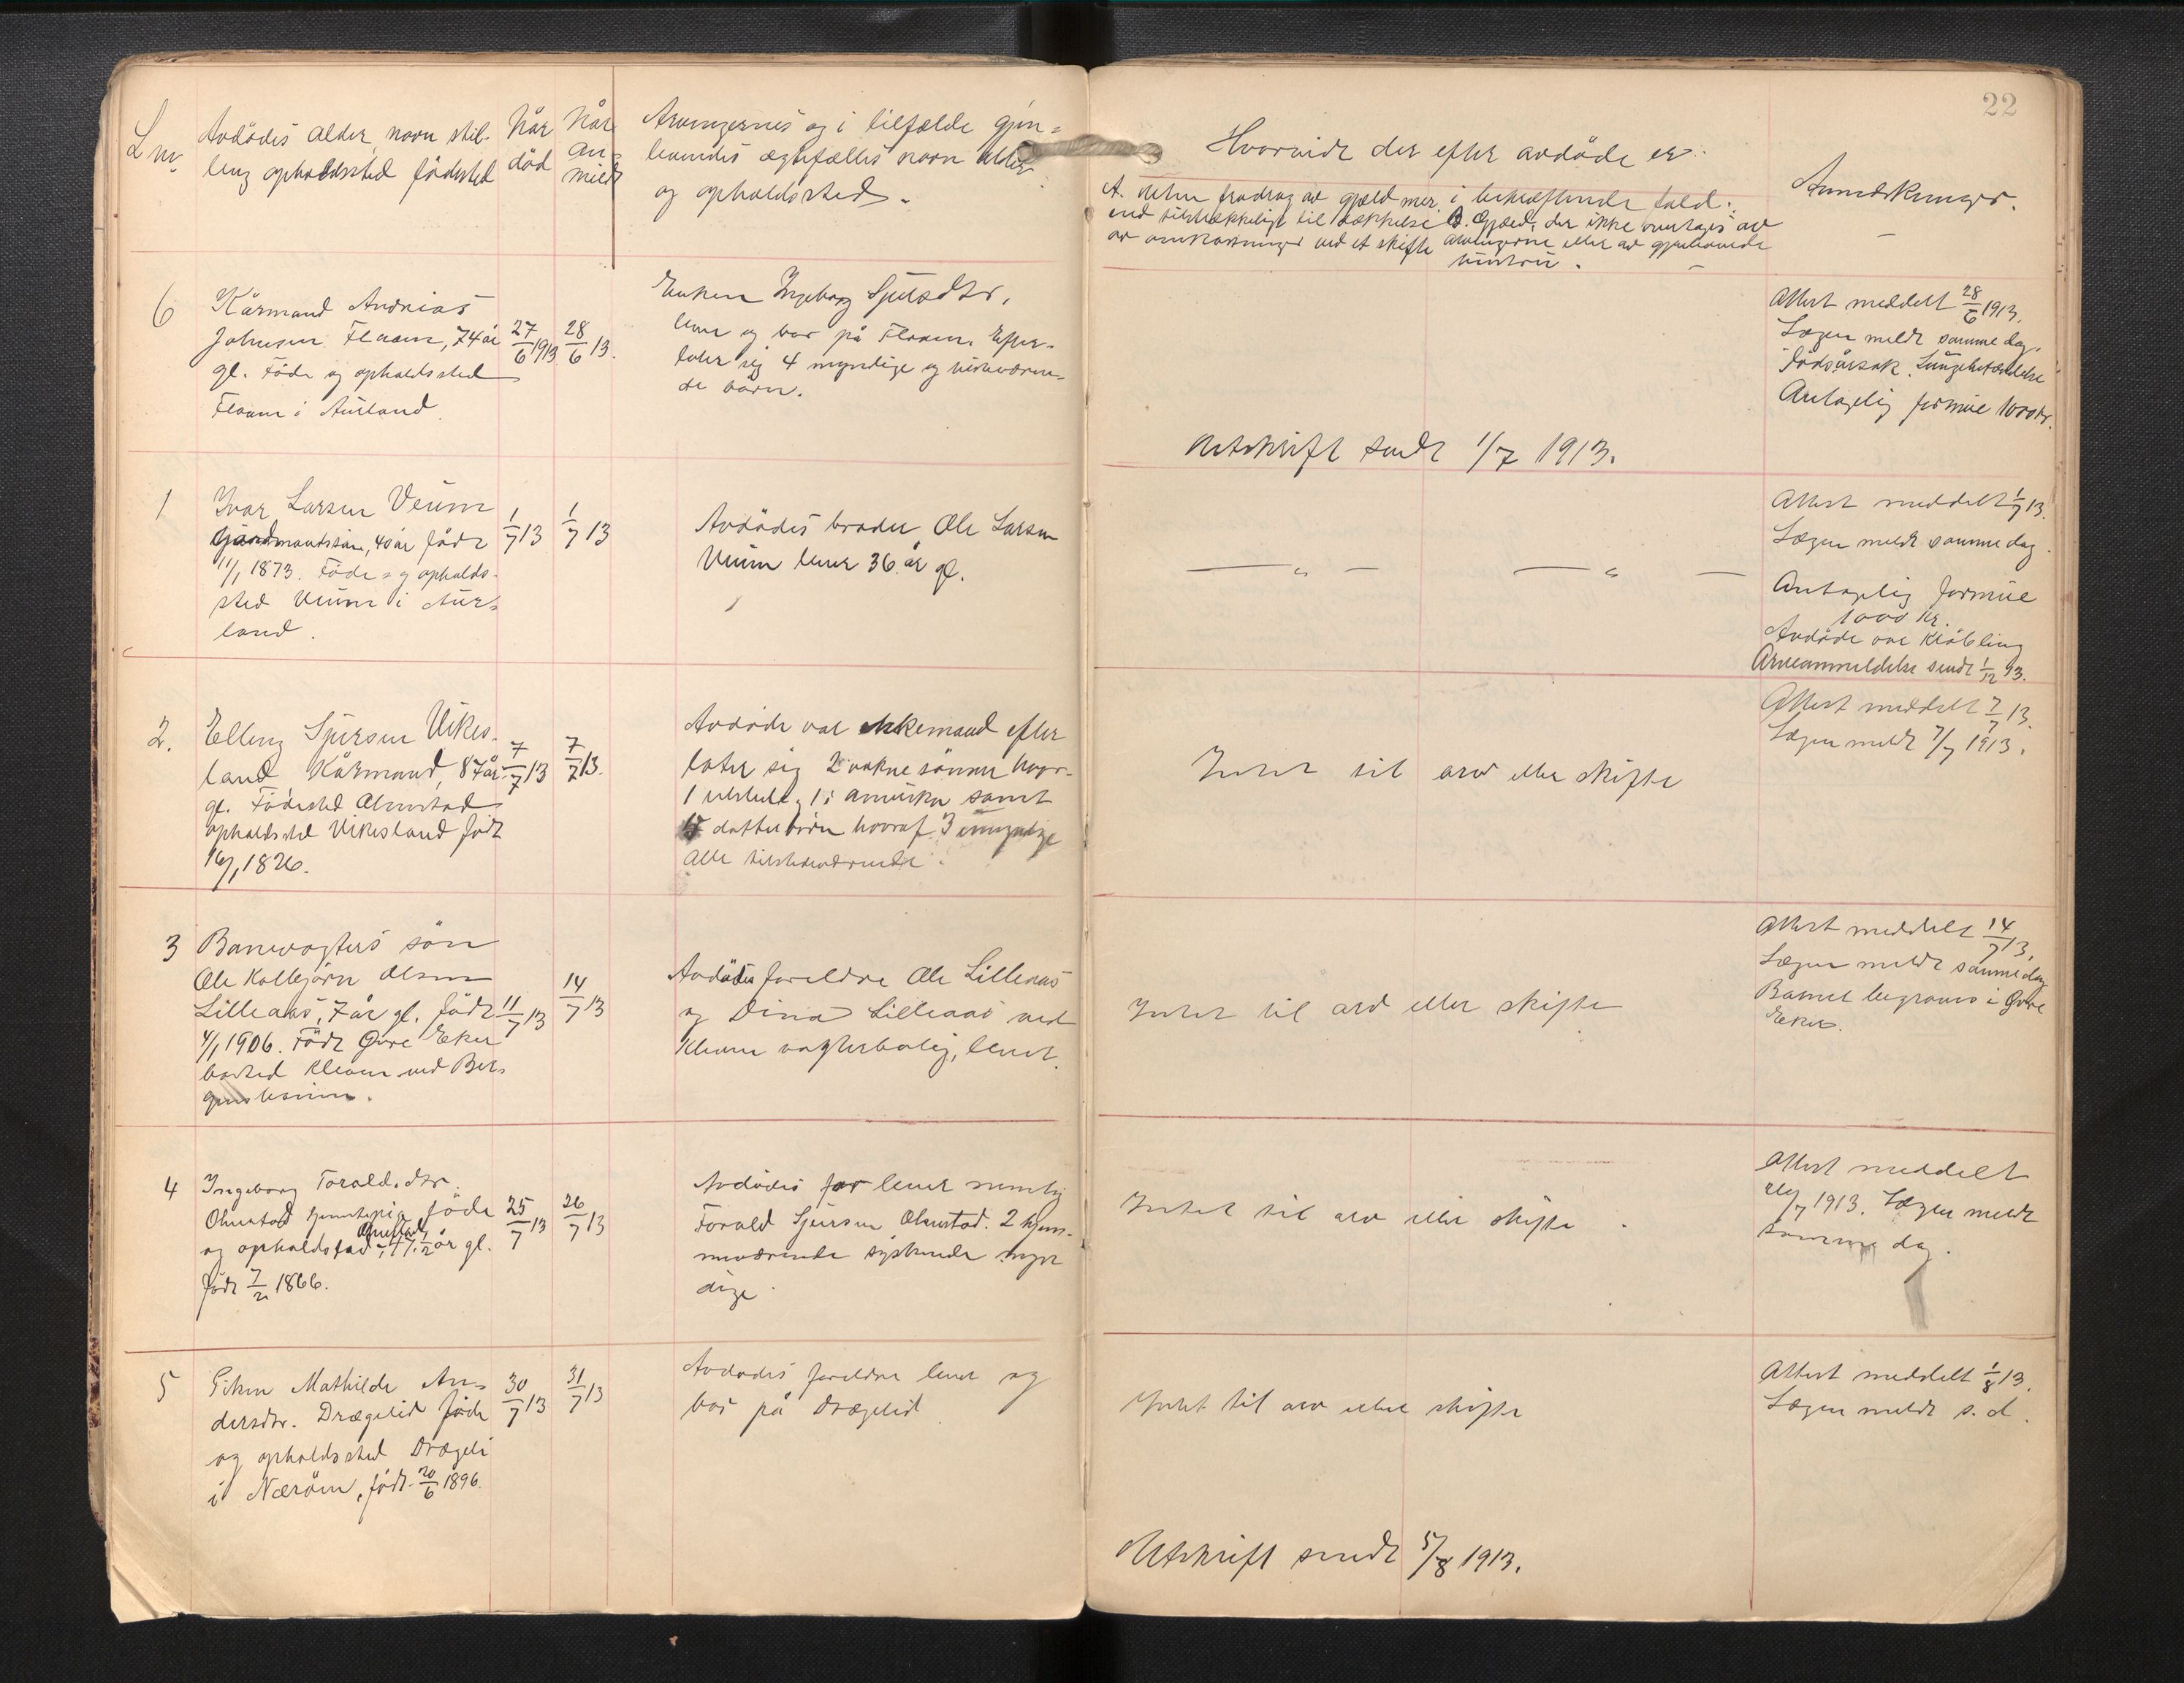 22
L nr.
Avdödes alder, navn stil-
ling opholdssted födested
Når
död
Når
an-
meldt
Arvingernes og i tilfælde gjen-
levendes ægtefælles navn alder
og opholdssted.
Hvorvidt der efter avdöde er:
A. uten fradrag av gjæld mer i bekræftende fald:
end tilstrækkelig til dækkelse B. Gjæld, der ikke overtages av
av omkostninger ved et skifte arvingerne eller av gjenlevende
Anmerkninger.
6
Kårmand Andreas
Johnsen Flaam, 74 år
gl. Föde og opholdssted
Flaam i Aurland
27/6 1913
28/6 13.
Enken Ingeborg Sjursdtr.
lever og bor på Flaam. Efter-
later sig 4 myndige og
de barn.
Attest meddelt 28/6 1913.
Lægen meldt samme dag.
Dödsårsak Lungebetændelse
Antagelig formue 1000 kr.
Utskrift sendt 1/7 1913.
1
Ivar Larsen Veum
Gårdmandssön, 40 år födt
11/1 1873. Föde og opholds-
sted Veum i Aur-
land.
1/7 13
1/7 13
Avdödes broder Ole Larsen
Veum lever 36 år gl.
— " —   — " —
Attest meddelt 1/7 13.
Lægen meldt samme dag.
Antagelig formue
1000 kr.
Avdöde var Kröbling
Arveanmeldelse sendt 1/12 13.
2.
Elling Sjursen Vikes-
land Kårmand, 87 år
gl. Födested Olmstad
opholdssted Vikesland födt
16/1 1826.
7/7 13
7/7 13.
Avdöde var enkemand efter
later sig 2 vokne sönner hvor-
1 tilstede, 1 i Amerika samt
datterbörn hvoraf 3 umyndige
alle tilstedeværende.
Intet til arv eller skifte
Attest meddelt 7/7 13.
Lægen meldt 7/7 1913.
3
Banevogters sön
Ole Kolbjörn Olsen
Lilleaas, 7 år gl. födt
4/1 1906. Födt Övre Eker
bosted Kleven ved Ber-
gensbanen.
11/7 13
14/7 13
Avdödes foreldre Ole Lilleaas
og Dina Lilleaas ved
Kleven vogterbolig, lever.
Intet til arv eller skifte
Attest meddelt 14/7 13.
Lægen meldt samme dag
Barnet begraves i Övre
Eker.
4
Ingeborg Toraldsdtr.
Olmstad föde
og opholdsstad Olmstad, 47 1/2 år gl.
födt 7/2 1866.
25/7 13
26/7 13
Avdödes far lever nemlig
Torald Sjursen Olmstad. 2 hjem-
meværende syskende myn
dige
Intet til arv eller skifte.
Attest meddelt
26/7 1913. Lægen meldt
samme dag.
5
Piken Mathilde An-
dersdtr. Drægelid föde
og opholdssted Drægeli
i Næröen, födt 20/6 1896.
30/7 13
31/7 13
Avdødes foreldre lever og
bor på Drægelid
Intet til arv eller skifte
Attest meddelt 1/8 13.
Lægen meldt s. d.
Utskrift sendt 5/8 1913.